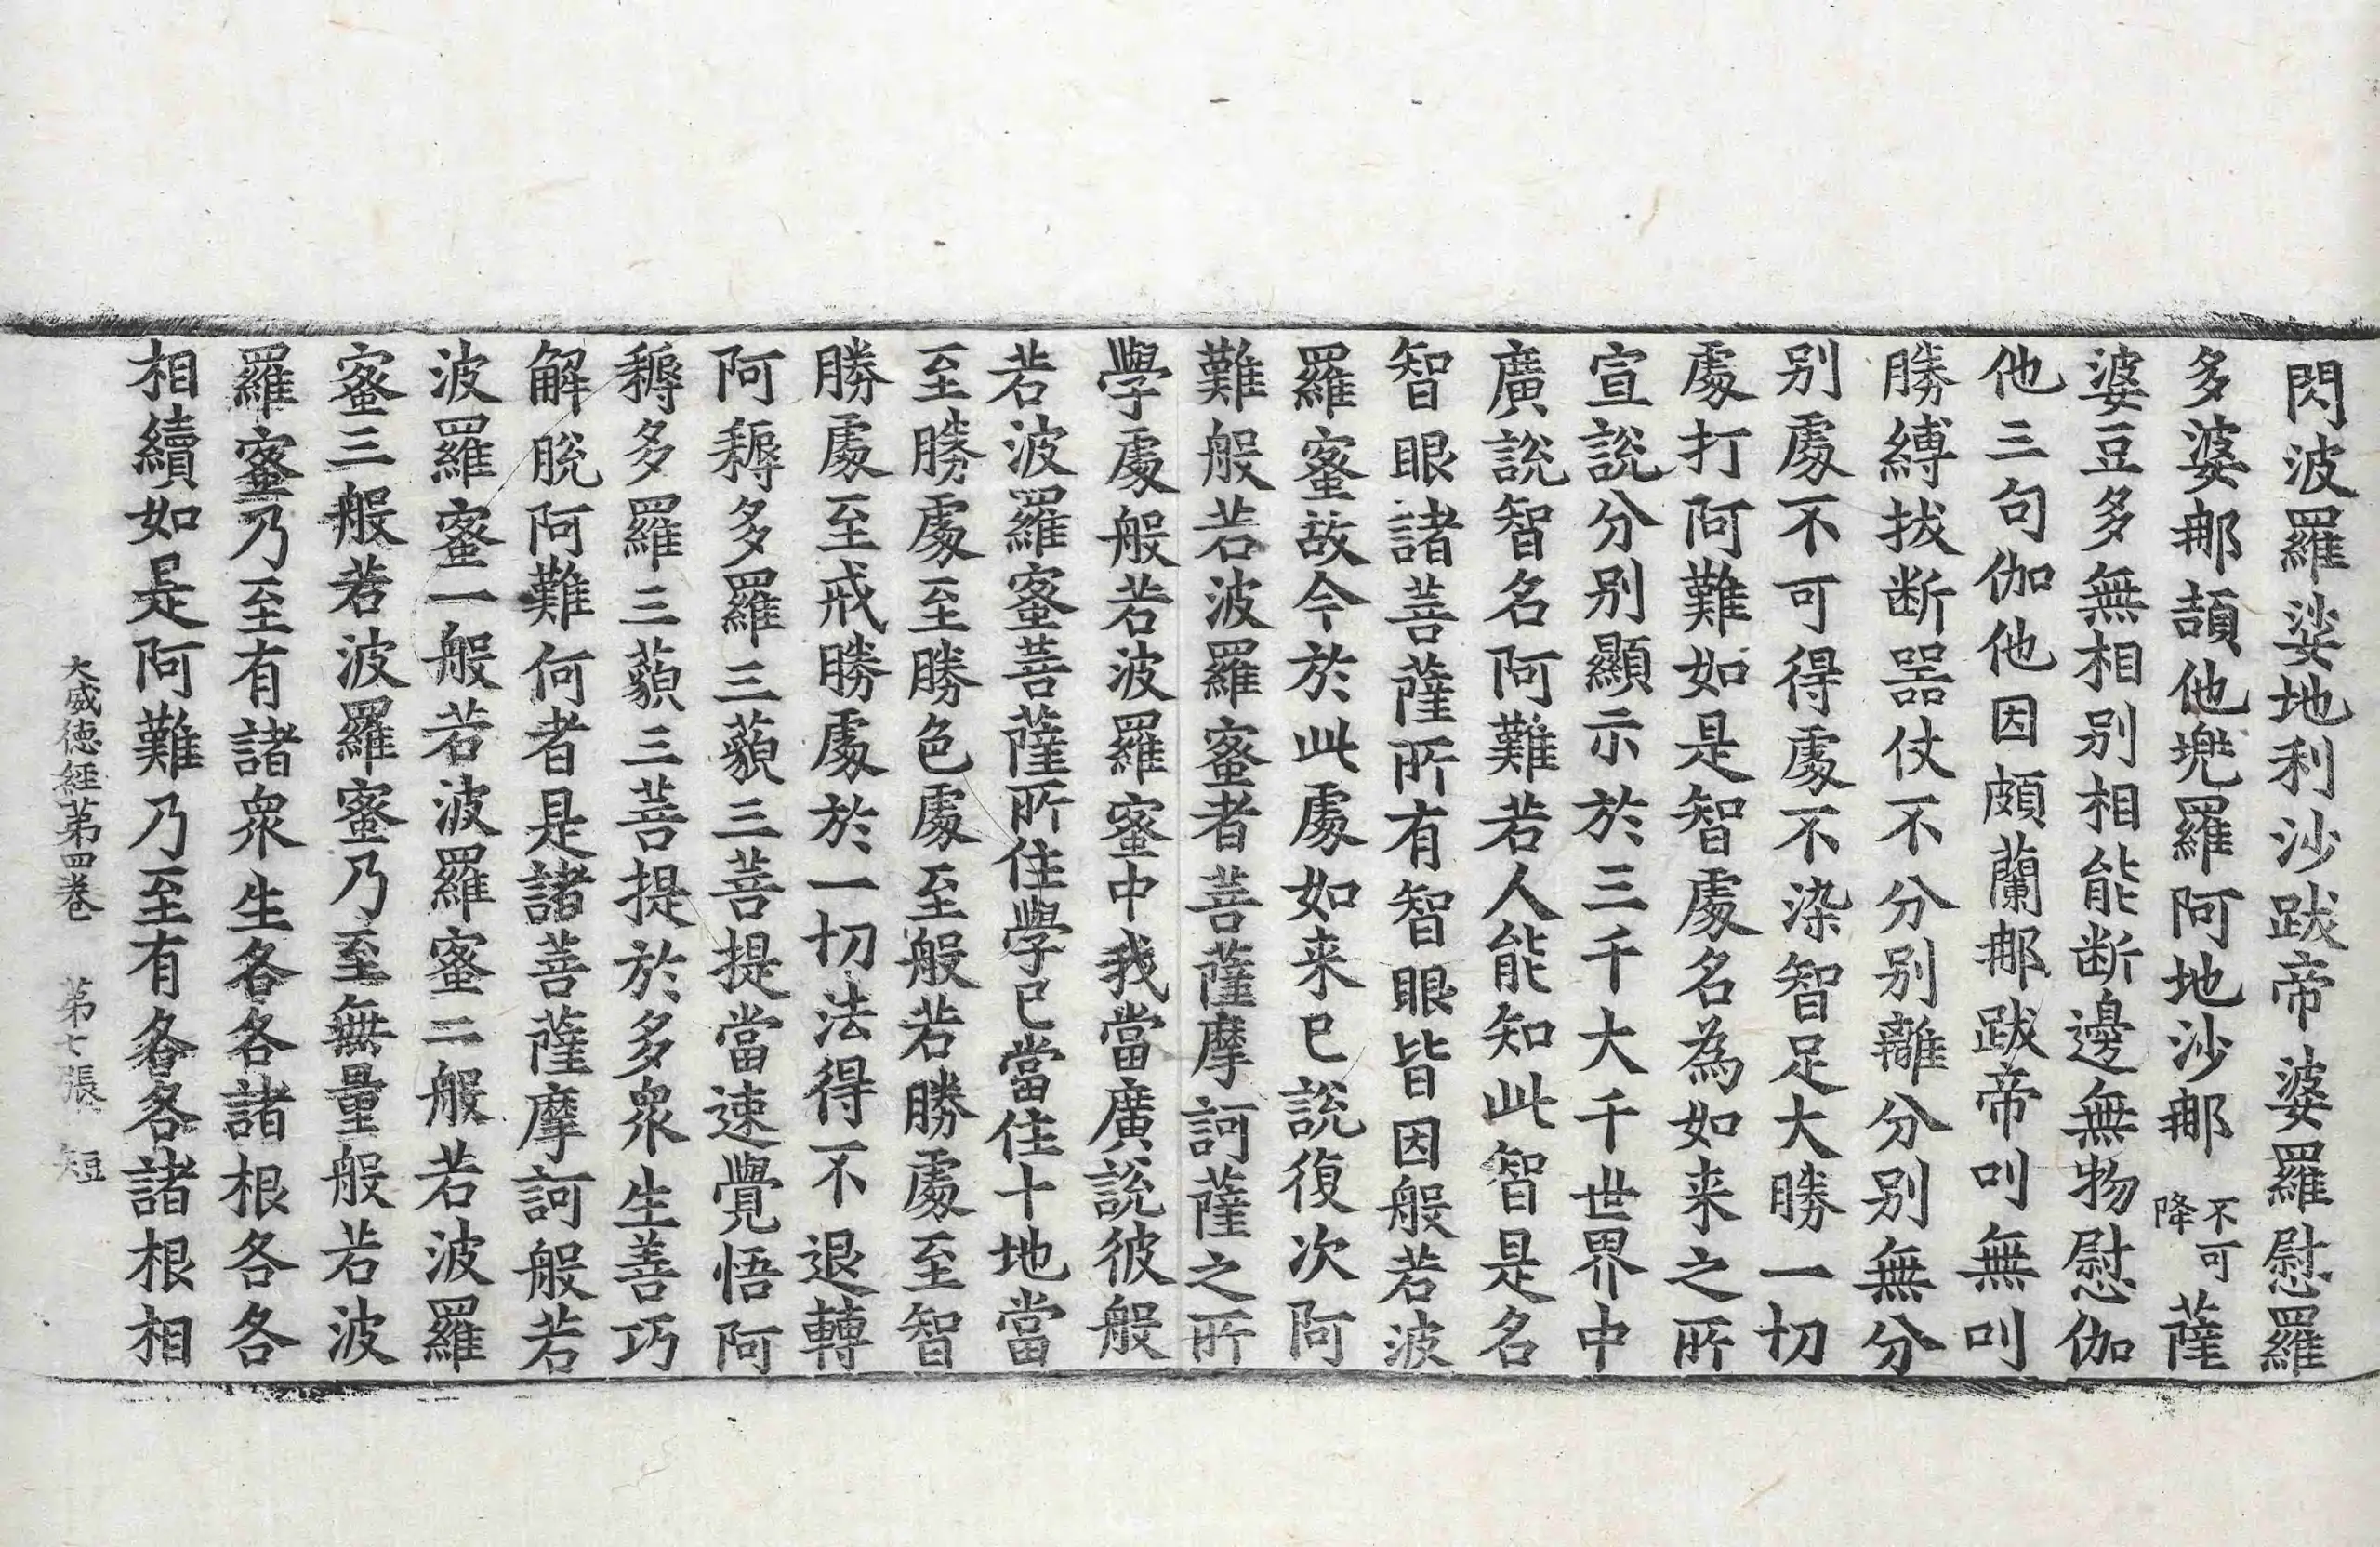 閃波羅娑地利沙跋帝婆羅慰羅
多婆郍頡他兠羅阿地沙郍不可降薩
婆豆多無相别相能断邊無物慰伽
他三句伽他因頗蘭郍跋帝叫無叫
勝縛拔断噐仗不分别離分别無分
别處不可得處不染智足大勝一切
處打阿難如是智處名為如来之所
宣說分别顯示於三千大千世界中
廣說智名阿難若人能知此智是名
智眼諸菩薩所有智眼皆因般若波
羅蜜故今於此處如来已說復次阿
難般若波羅蜜者菩薩摩訶薩之所
學處般若波羅蜜中我當廣說彼般
若波羅蜜菩薩所住學已當住十地當
至勝處至勝色處至般若勝處至智
勝處至戒勝處於一切法得不退轉
阿耨多羅三藐三菩提當速覺悟阿
耨多羅三藐三菩提於多衆生善巧
解脫阿難何者是諸菩薩摩訶般若
波羅蜜一般若波羅蜜二般若波羅
蜜三般若波羅蜜乃至無量般若波
羅蜜乃至有諸衆生各各諸根各各
相續如是阿難乃至有各各諸根相
大威德經苐四卷 苐七張 短